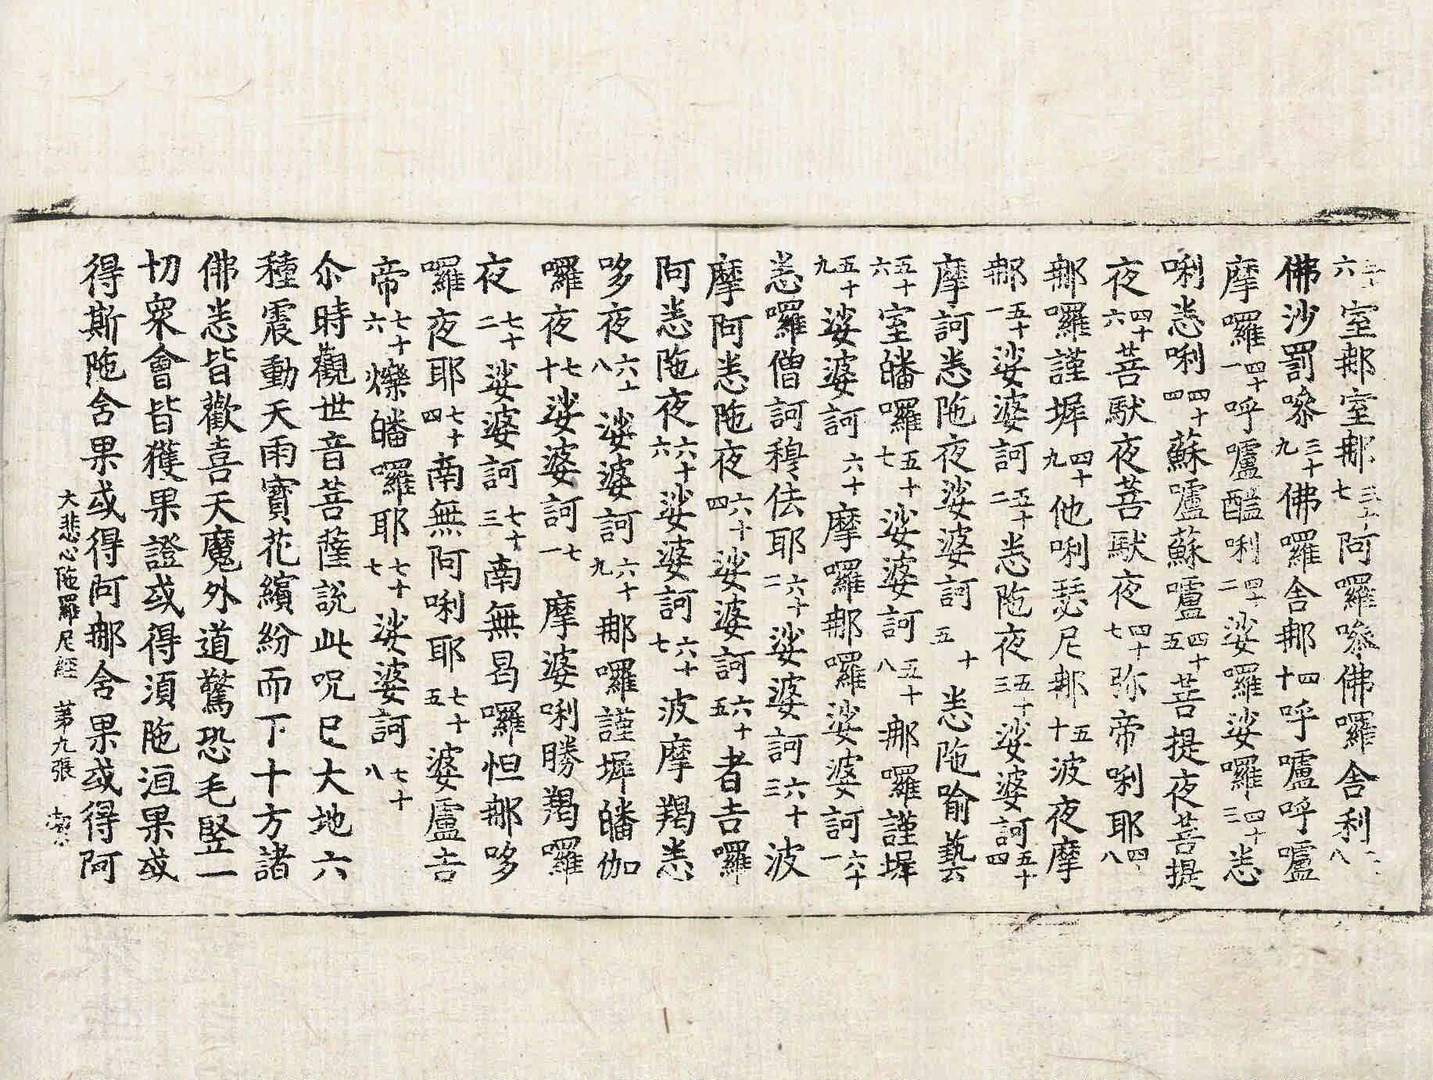 三十六室那室那三十七阿囉嘇佛囉舍利三十八
佛沙罰嘇三十九佛囉舍那四十呼嚧呼嚧
摩囉四十一呼嚧醯唎四十二娑囉娑囉四十三悉
唎悉唎四十四蘇嚧蘇嚧四十五菩提夜菩提
夜四十六菩䭾夜菩䭾夜四十七弥帝唎耶四十八
那囉謹墀四十九他唎瑟尼那五十波夜摩
那五十一娑婆訶五十二悉陁夜五十三娑婆訶五十四
摩訶悉陁夜娑婆訶五十五悉陁喻藝
五十六室皤囉五十七娑婆訶五十八那囉謹墀
五十九娑婆訶六十摩囉那囉娑婆訶六十一
悉囉僧訶穆佉耶六十二娑婆訶六十三波
摩阿悉陁夜六十四娑婆訶六十五者吉囉
阿悉陁夜六十六娑婆訶六十七波摩羯悉
哆夜六十八娑婆訶六十九那囉謹墀皤伽
囉夜七十娑婆訶七十一摩婆唎勝羯囉
夜七十二娑婆訶七十三南無曷囉怛那哆
囉夜耶七十四南無阿唎耶七十五婆盧吉
帝七十六爍皤囉耶七十七娑婆訶七十八
尒時觀世音菩薩說此呪已大地六
種震動天雨寶花繽紛而下十方諸
佛悉皆歡喜天魔外道驚恐毛竪一
切衆會皆獲果證或得湏陁洹果或
得斯陁含果或得阿那含果或得阿
大悲心陁羅尼經 苐九張